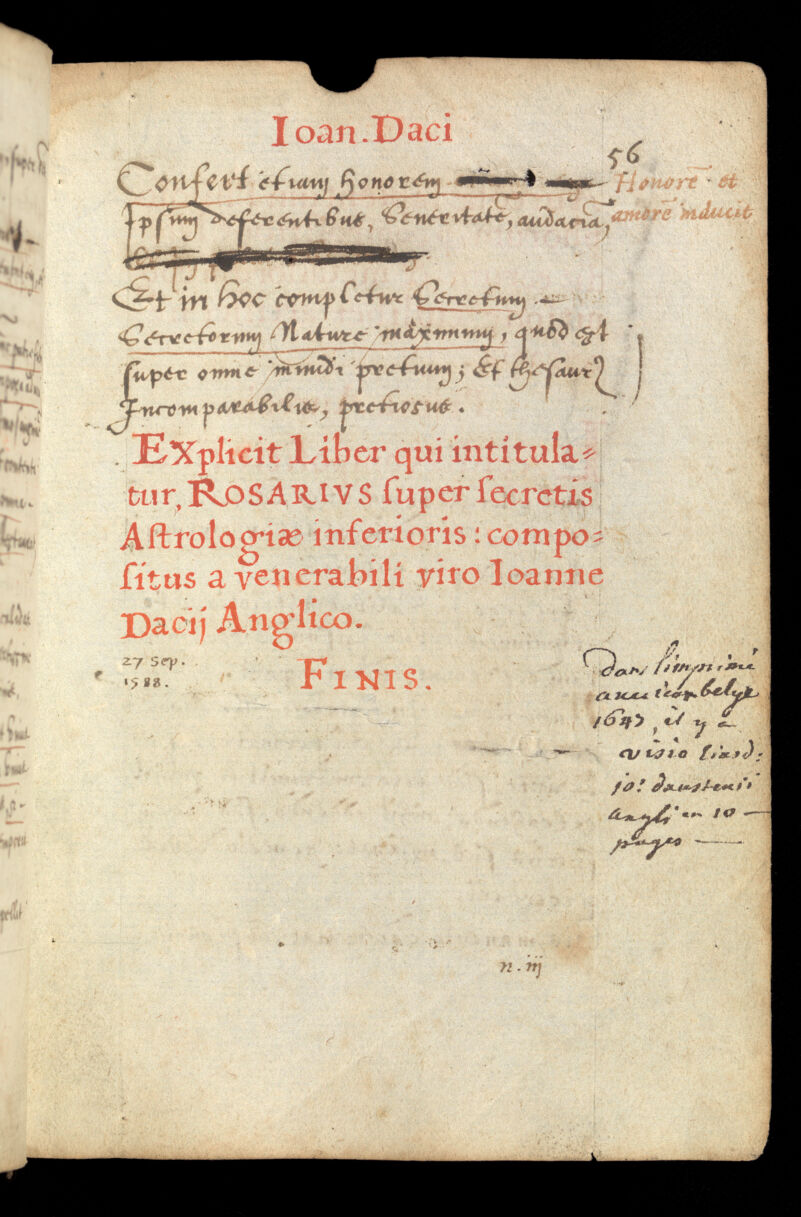 Ioan. Daci
56
Confert etiam honorem
Honorē et
amorē inducit
Ipsum deferentibus, Seueritatē, audaciā,
Et in hoc completur Secretum
Secretorum Nature maximum, quod est
super omne mundi pretium; Et thesaurꝰ
Incomparabilis, pretiosus.
EXplicit Liber qui intitula⸗
tur, ROSARIVS ſuper ſecretis
Aſtrologiæ inferioris: compo⸗
ſitus a venerabili viro Ioanne
Dacij Anglico.
27 Sep.
1588.
FINIS.
Dans limprimé
belge
1647, il y a
visio
jo: daustenii
angli en 10
pages
n. iij